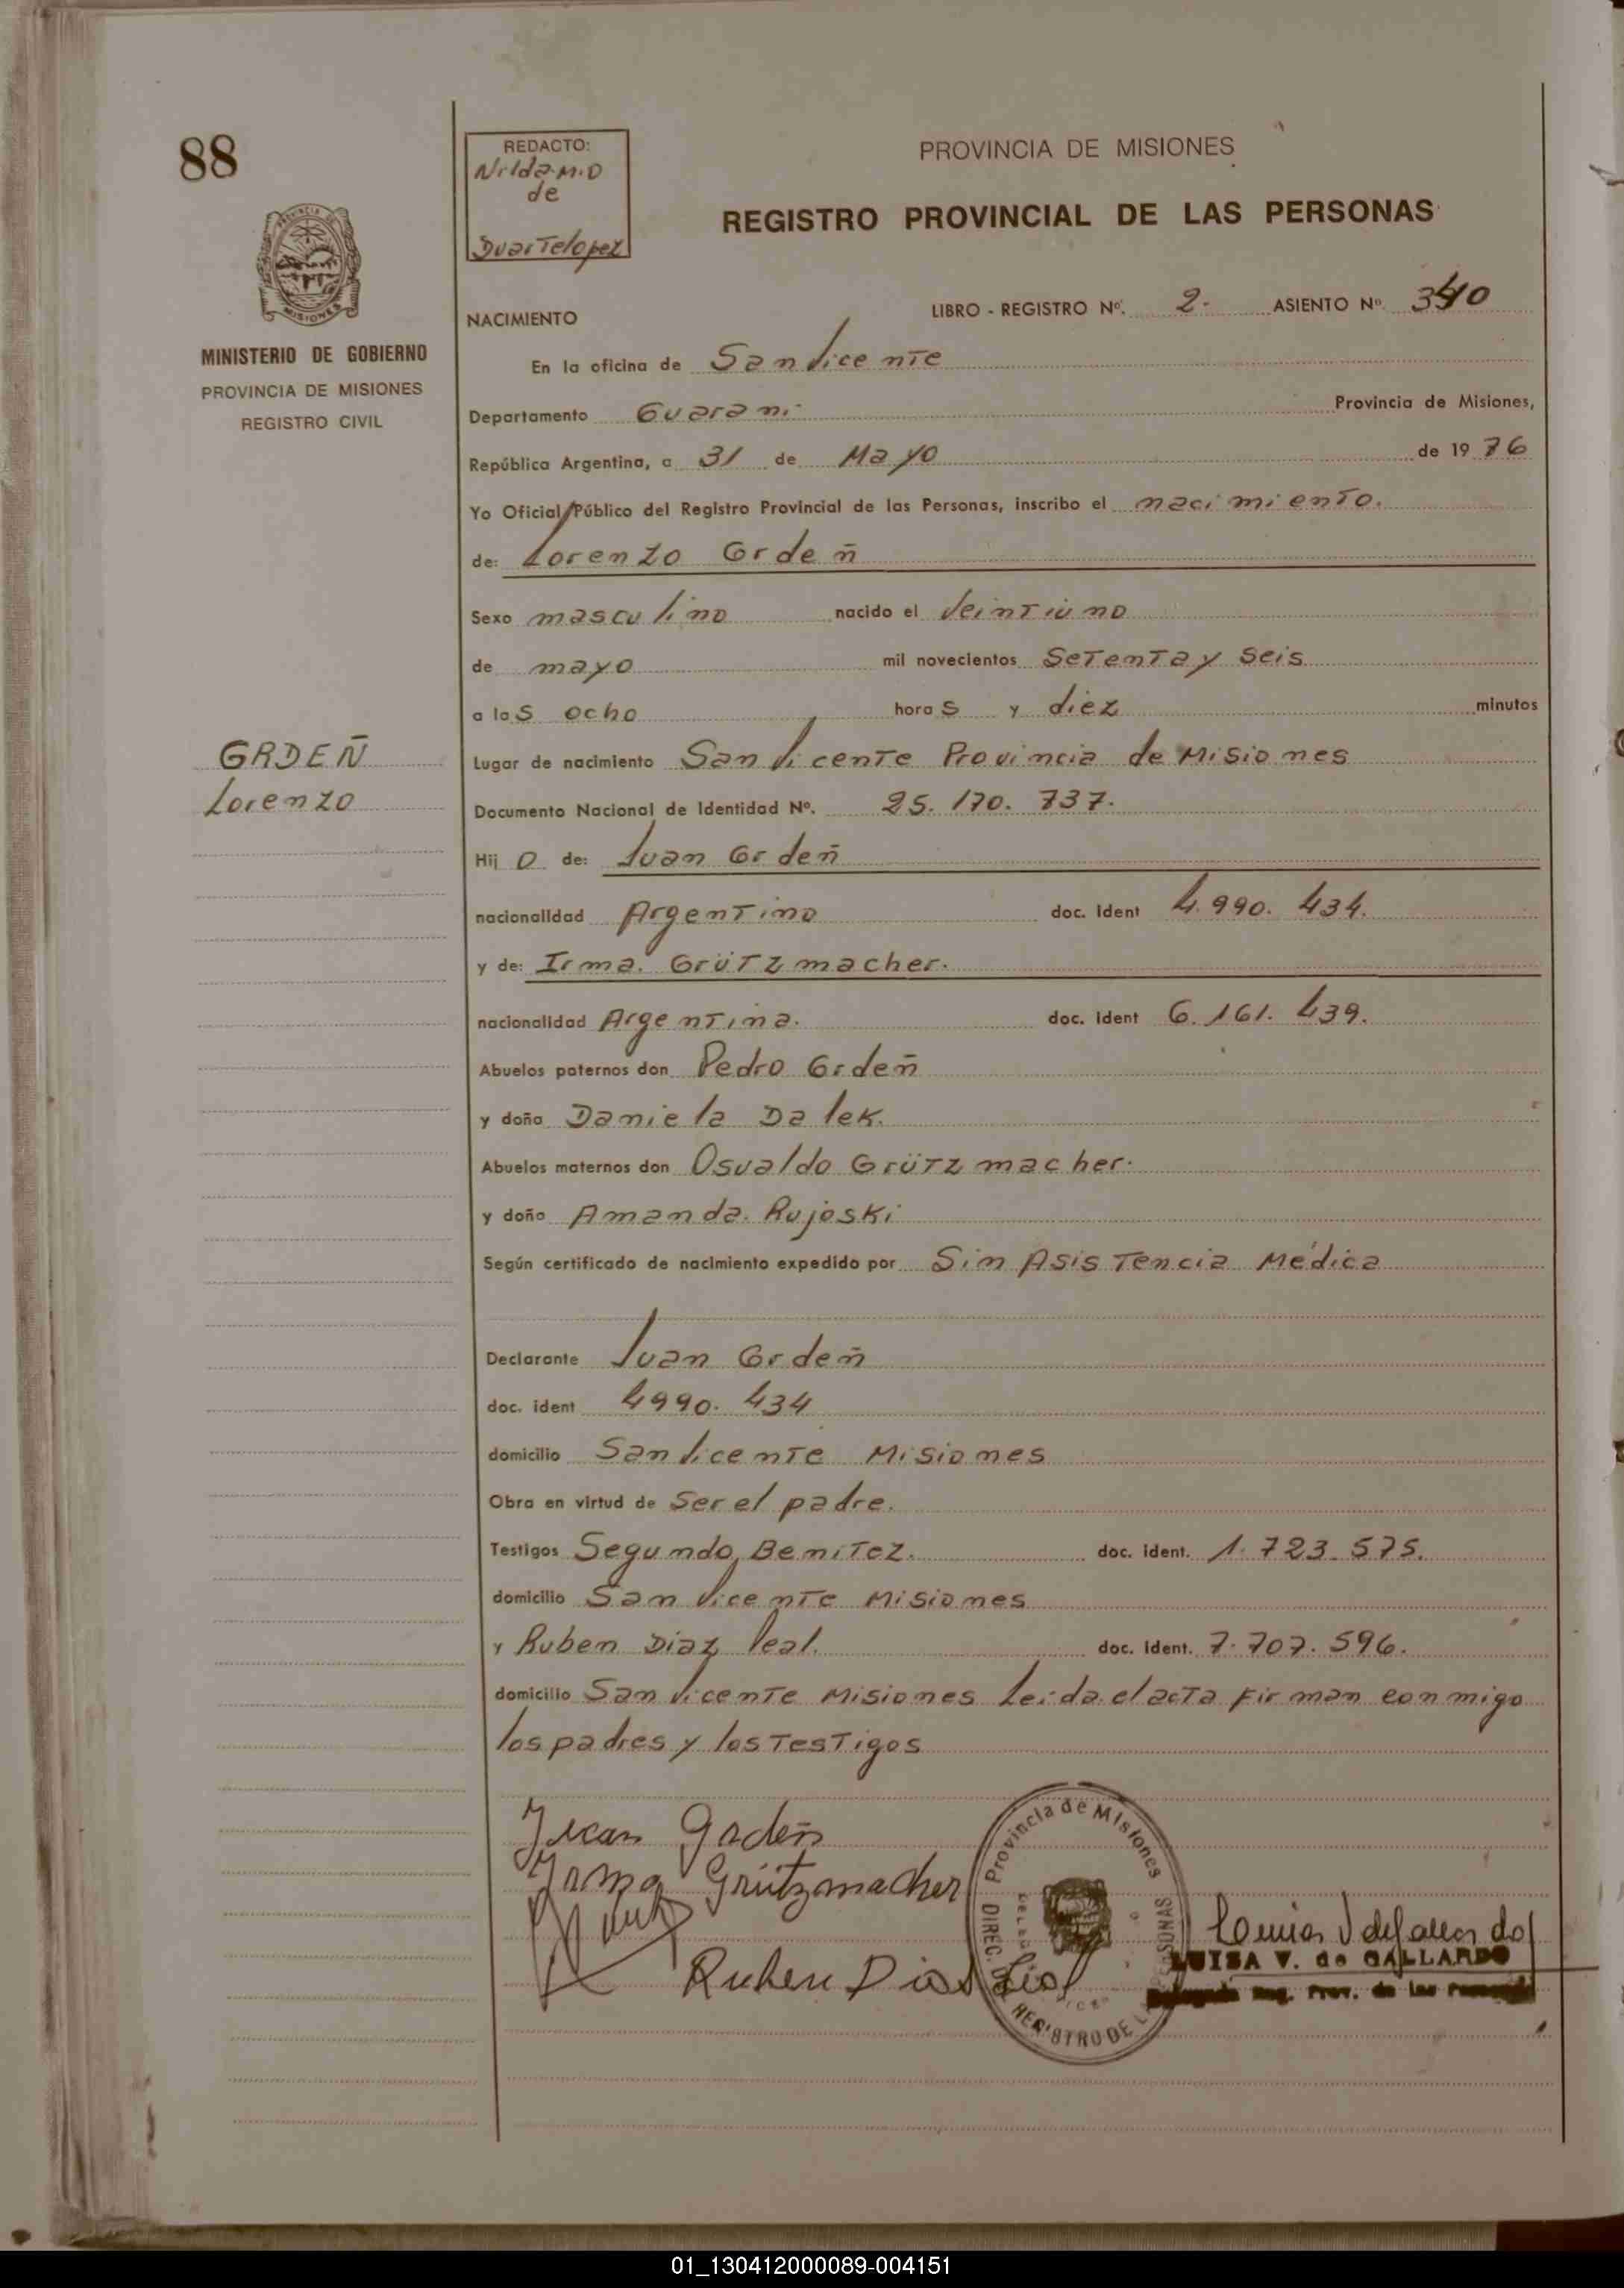 88
REDACTO:
Nilda M.D
de
Duartelopez
PROVINCIA DE MISIONES
REGISTRO PROVINCIAL DE LAS PERSONAS
MISIONES
MINISTERIO DE GOBIERNO
PROVINCIA DE MISIONES
REGISTRO CIVIL
NACIMIENTO LIBRO - REGISTRO Nº. 2- ASIENTO Nº. 340
En la oficina de San Vicente
Departamento Guarani Provincia de Misiones,
República Argentina, a 31 de Mayo de 1976
Yo Oficial Público del Registro Provincial de las Personas, inscribo el nacimiento.
de: Lorenzo Grdeñ
Sexo masculino nacido el Veintiuno
de mayo mil novecientos Setenta y Seis
a las ocho horas y diez minutos
GRDEÑ
Lorenzo
Lugar de nacimiento San Vicente Provincia de Misiones
Documento Nacional de Identidad Nº. 25.170.737.
Hijo de: Juan Grdeñ
nacionalidad Argentino doc. Ident 4.990.434.
y de: Irma. Grützmacher.
nacionalidad Argentina. doc. Ident 6.161.439.
Abuelos paternos don Pedro Grdeñ
y doña Daniela Dalek.
Abuelos maternos don Osvaldo Grützmacher.
y doña Amanda. Rujoski
Según certificado de nacimiento expedido por Sin Asistencia Médica
Declarante Juan Grdeñ
doc. ident 4990.434
domicilio San Vicente Misiones
Obra en virtud de Ser el padre.
Testigos Segundo Benitez. doc. ident. 1.723.575.
domicilio San Vicente Misiones
y Ruben Diaz Leal. doc. Ident. 7.707.596.
domicilio San Vicente Misiones Leida el acta firman conmigo
los padres y los Testigos
Juan Grdeñ
Irma Grützmacher
Ruben Dias Leal
Provincia de Misiones
REGISTRO DE
LUISA V. de GALLARDO
Reg. Prov. de las Personas
01_130412000089-004151